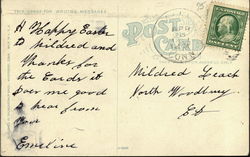 THIS SPACE FOR WRITING MESSAGES
POST
CARD
A Happy Easter
to hildred and
Thanks for
the Cards it
does me good
to hear from
you
Emeline
Mildred Leach
North Woodbury
Ct